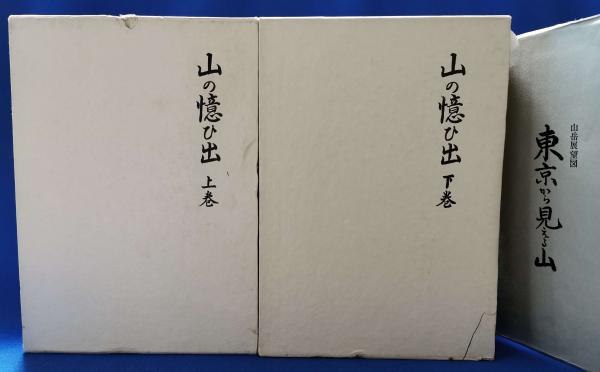 山の憶ひ出 上巻
山の憶ひ出 下巻
山岳展望図
東京から見える山